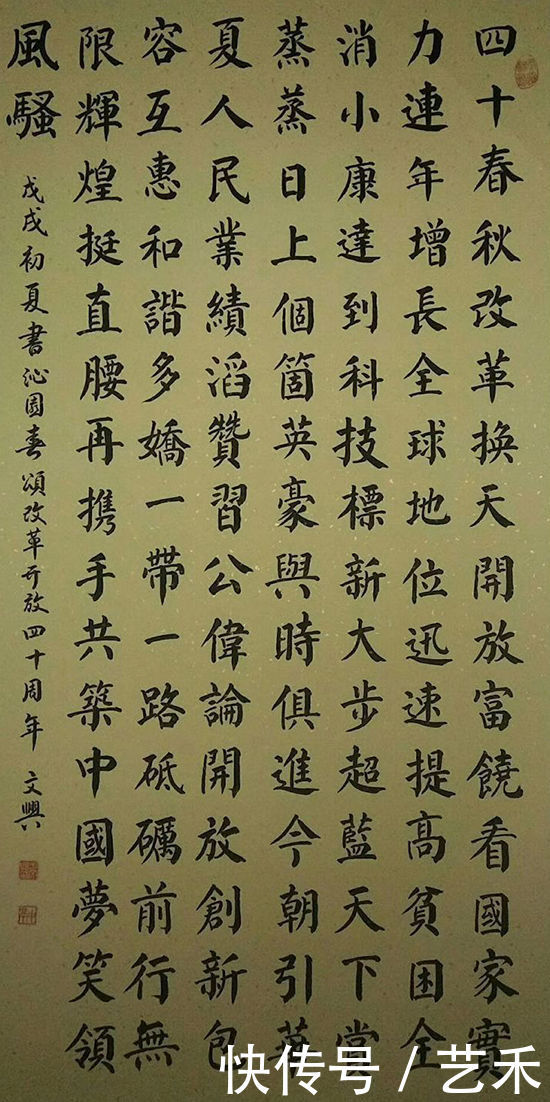 四十春秋改革換天開放富饒看國家實
力連年增長全球地位迅速提高貧困全
消小康達到科技標新大步超藍天下賞
蒸蒸日上個箇英豪與時俱進今朝引華
夏人民業績滔贊習公偉論開放創新包
容互惠和諧多嬌一帶一路砥礪前行無
限輝煌挺直腰再携手共築中國夢笑領
風騷
戊戌初夏書沁園春頌改革开放四十周年 文興
快传号 / 艺禾